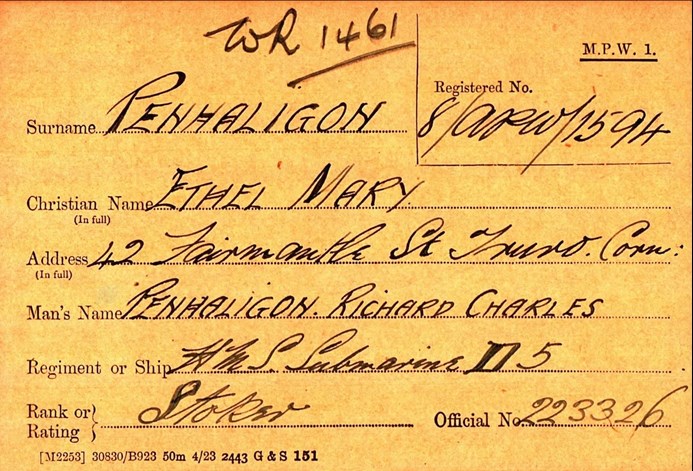 WR 1461
M.P.W. 1.
Registered No.
8/ARW/1594
Surname PENHALIGON
Christian Name ETHEL MARY
(In full)
Address 42 Fairmantle St Truro. Corn:
(In full)
Man's Name PENHALIGON. RICHARD CHARLES
Regiment or Ship H.M.S. Submarine D 5
Rank or Rating} Stoker Official No. 223326
[M2253] 30830/B923 50m 4/23 2443 G & S 151